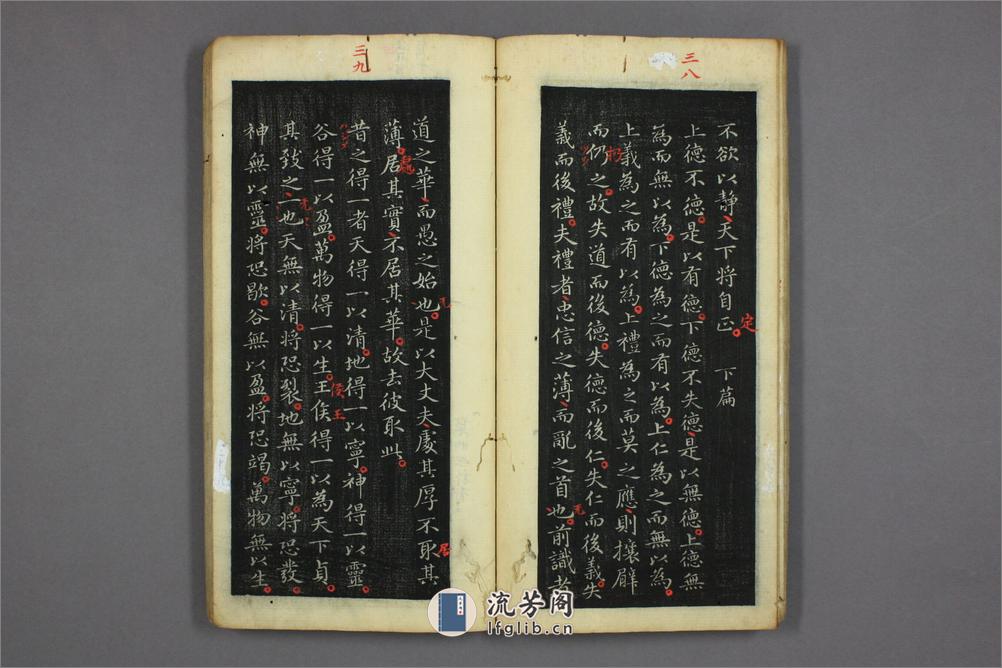 三八
不欲以靜天下將自正 下篇
定
上德不德是以有德下德不失德是以無德上德無
為而無以為下德為之而有以為上仁為之而無以為
上義為之而有以為上禮為之而莫之應則攘臂
而仍之故失道而後德失德而後仁失仁而後義失
義而後禮夫禮者忠信之薄而亂之首也前識者
三九
道之華而愚之始也是以大丈夫處其厚不取其
居
薄居其實不居其華故去彼取此
處
昔之得一者天得一以清地得一以寧神得一以靈
谷得一以盈萬物得一以生王侯得一以為天下貞
侯王
其致之一也天無以清將恐裂地無以寧將恐發
神無以靈將恐歇谷無以盈將恐竭萬物無以生
流芳阁
lfglib.cn